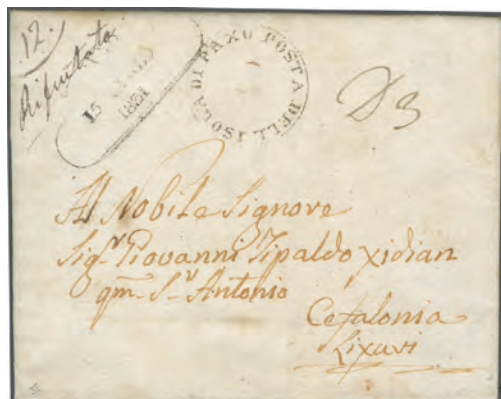 12.
Rifiutata
15
1831
POSTA DELL ISOLA DI PAXO
D3
Al Nobile Signore
Sig.r Giovanni Tipaldo Xidian
qm. S.r Antonio
Cefalonia
Lixuri